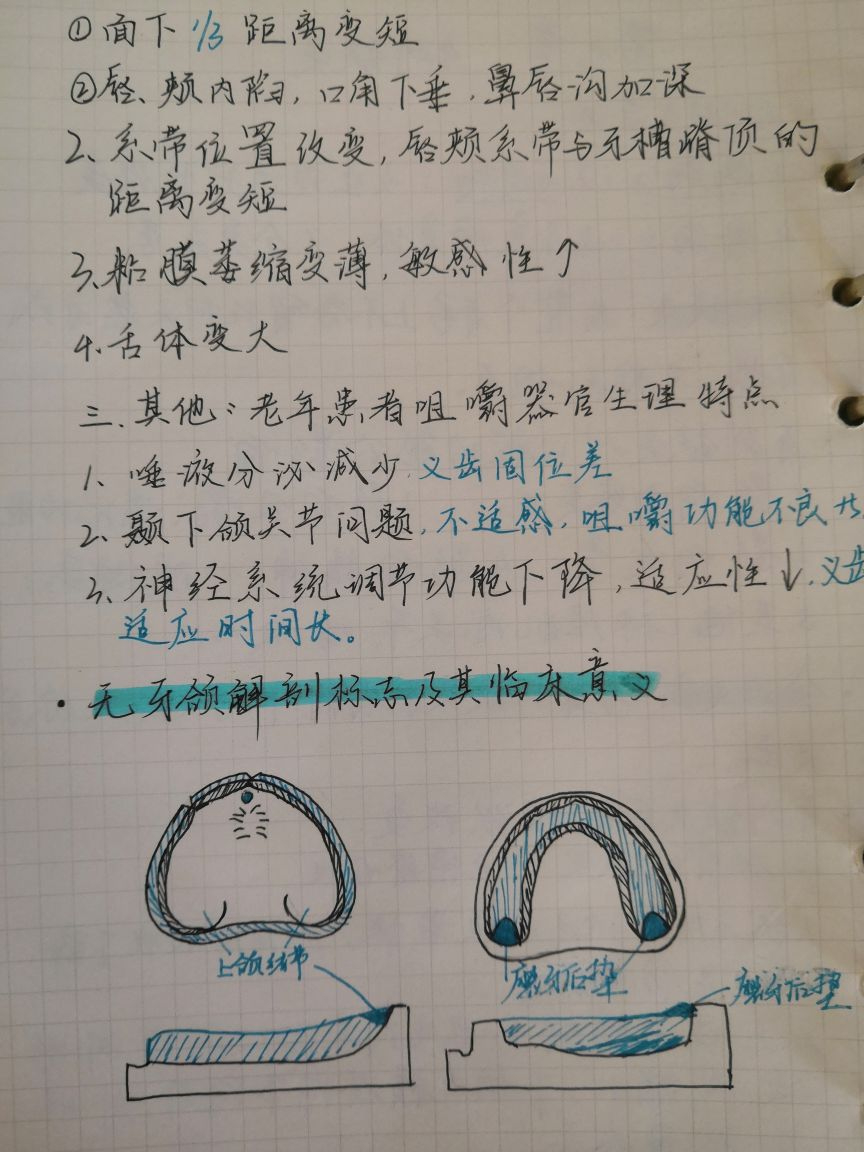 ①面下1/3距离变短
②唇、颊内陷，口角下垂，鼻唇沟加深
2、系带位置改变，唇颊系带与牙槽嵴顶的
距离变短
3、粘膜萎缩变薄，敏感性↑
4、舌体变大
三、其他：老年患者咀嚼器官生理特点
1、唾液分泌减少，义齿固位差
2、颞下颌关节问题，不适感，咀嚼功能不良
3、神经系统调节功能下降，适应性↓，义齿
适应时间长。
·无牙颌解剖标志及其临床意义
上颌结节
磨牙后垫
磨牙后垫